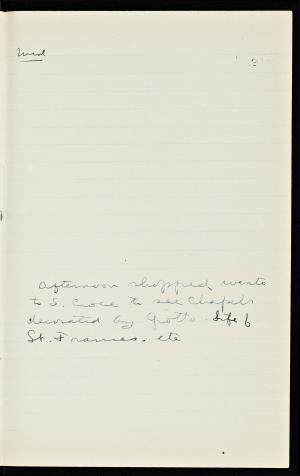 Wed
afternoon shopped, went to
to S. Croce to see Chapels
decorated by Giotto. Life of
St. Frances. etc